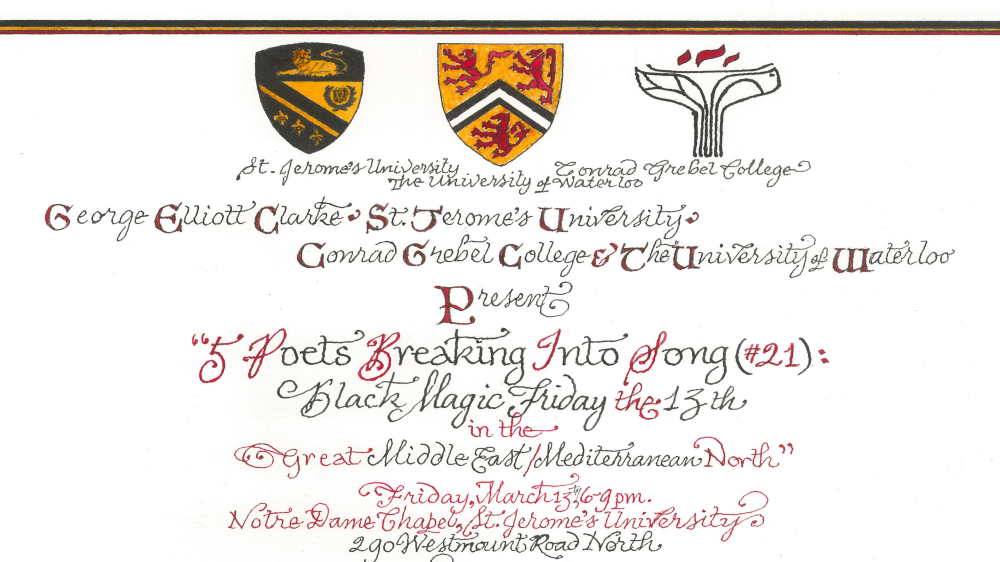 St. Jerome's University
The University of Waterloo
Conrad Grebel College
George Elliott Clarke • St. Jerome's University •
Conrad Grebel College & The University of Waterloo
Present
"5 Poets Breaking Into Song (#21):
Black Magic Friday the 13th
in the
Great Middle East/Mediterranean North"
Friday, March 13th, 6-9pm.
Notre Dame Chapel, St. Jerome's University
290 Westmount Road North